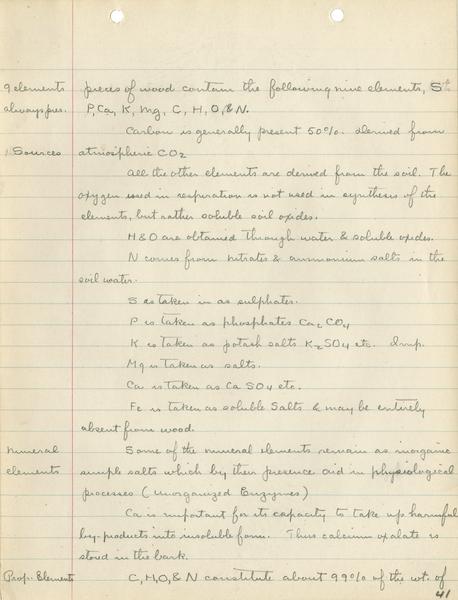 9 elements pieces of wood contain the following nine elements, S
always pres. P, Ca, K, Mg, C, H, O, & N.
Carbon is generally present 50%. derived from
Sources atmospheric CO2
All the other elements are derived from the soil. The
oxygen used in respiration is not used in synthesis of the
elements, but rather soluble soil oxides.
H & O are obtained through water & soluble oxides.
N comes from nitrates & ammonium salts in the
soil water.
S is taken in as sulphates.
P is taken as phosphates Ca2 CO4
K is taken as potash salts K2SO4 etc. Imp.
Mg is taken as salts.
Ca is taken as Ca SO4 etc.
Fe is taken as soluble Salts & may be entirely
absent from wood.
Mineral Some of the mineral elements remain as inorganic
elements simple salts which by their presence aid in physiological
processes (Unorganized Enzymes)
Ca is important for its capacity to take up harmful
by-products into insoluble form. Thus calcium oxalate is
stored in the bark.
Prop. Elements C, H, O, & N constitute about 99% of the wt. of
41